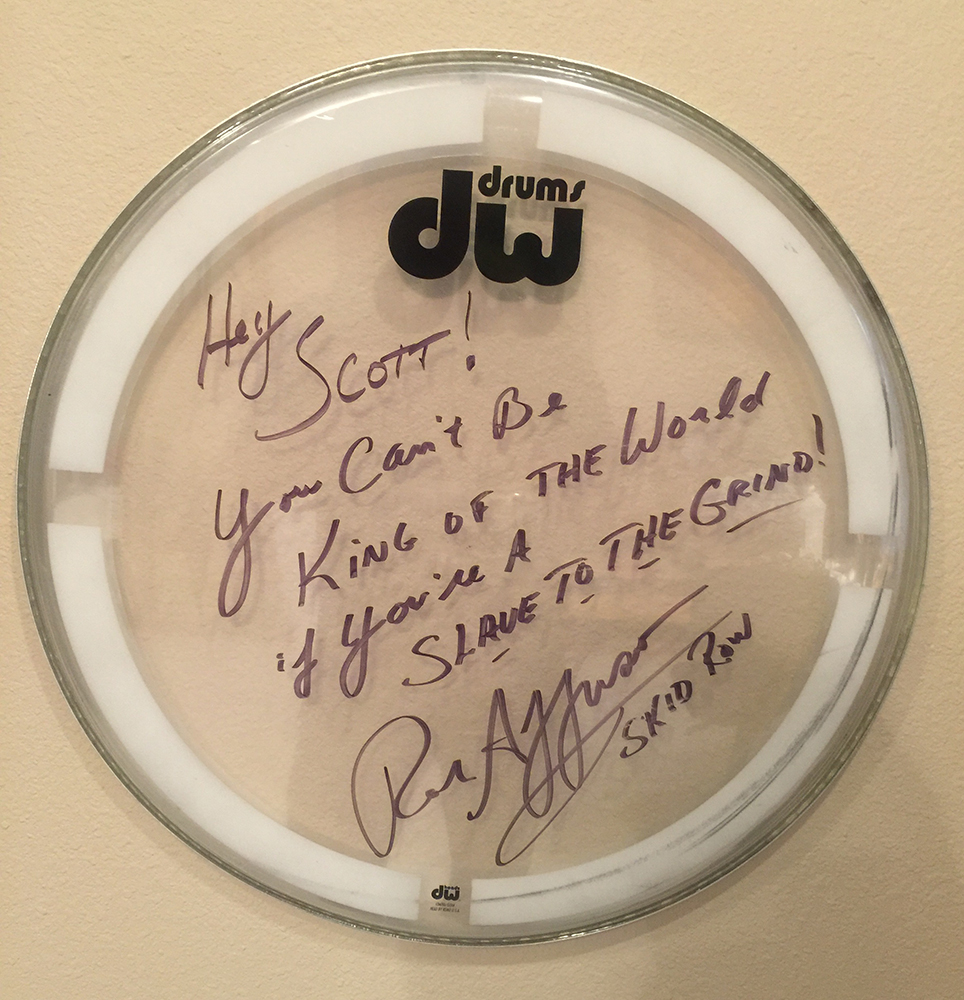 drums
dw
Hey
SCOTT!
You Can't Be
KING OF THE World
if You're A
SLAVE TO THE GRIND!
Rob Affuso
SKID ROW
dw